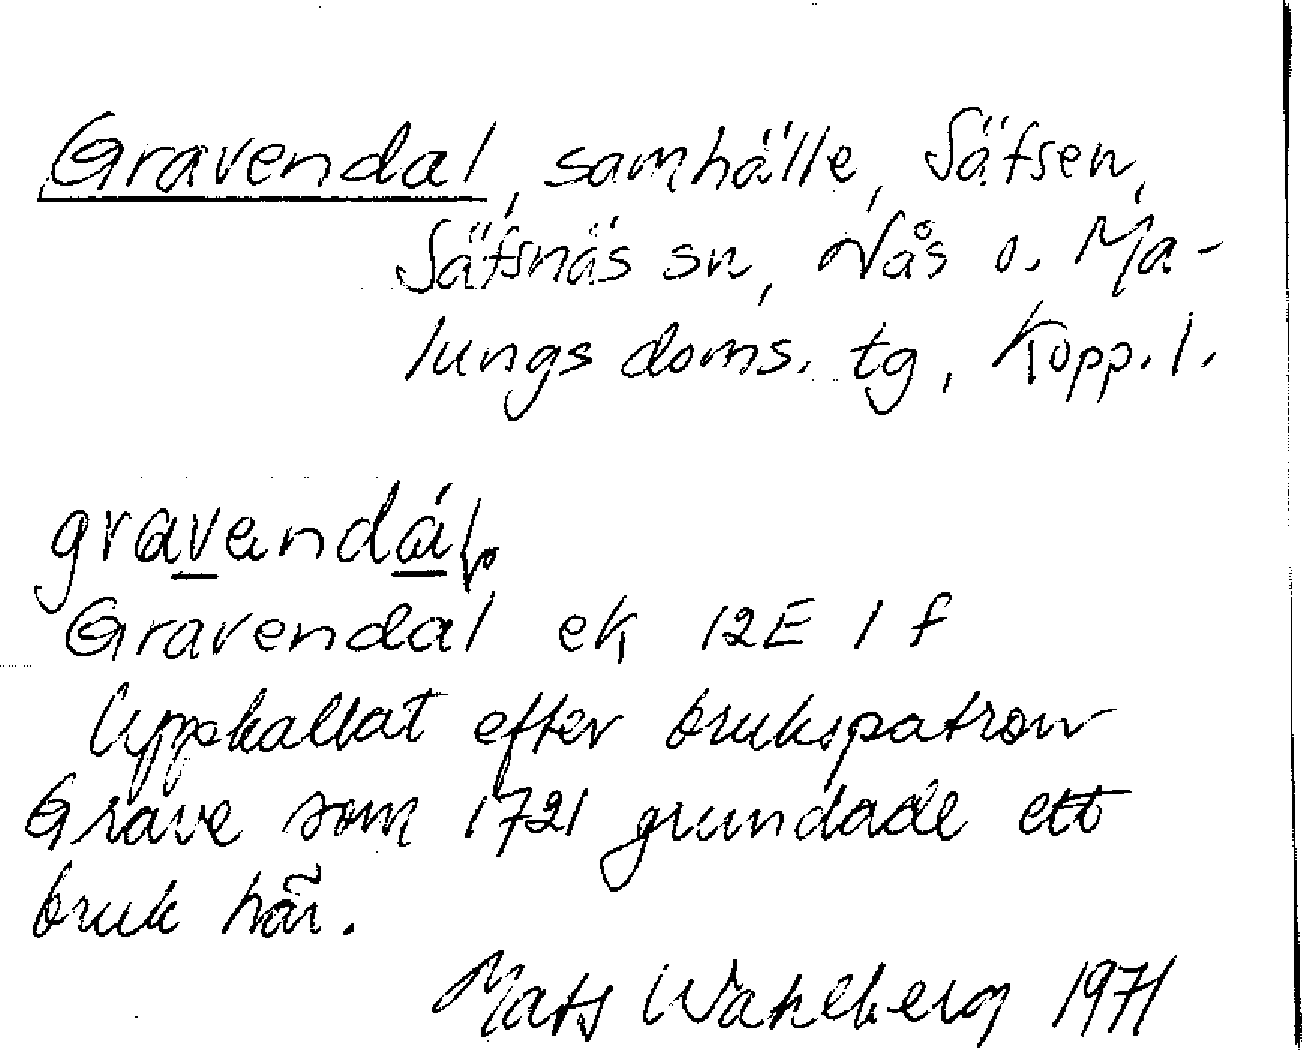 Gravendal, samhälle, Säfsen,
Säfsnäs sn, Nås o. Ma-
lungs doms. tg, Kopp. l.
gravendál
Gravendal ek 12E 1 f
Uppkallat efter brukspatron
Grave som 1721 grundade ett
bruk här.
Mats Wahlberg 1971